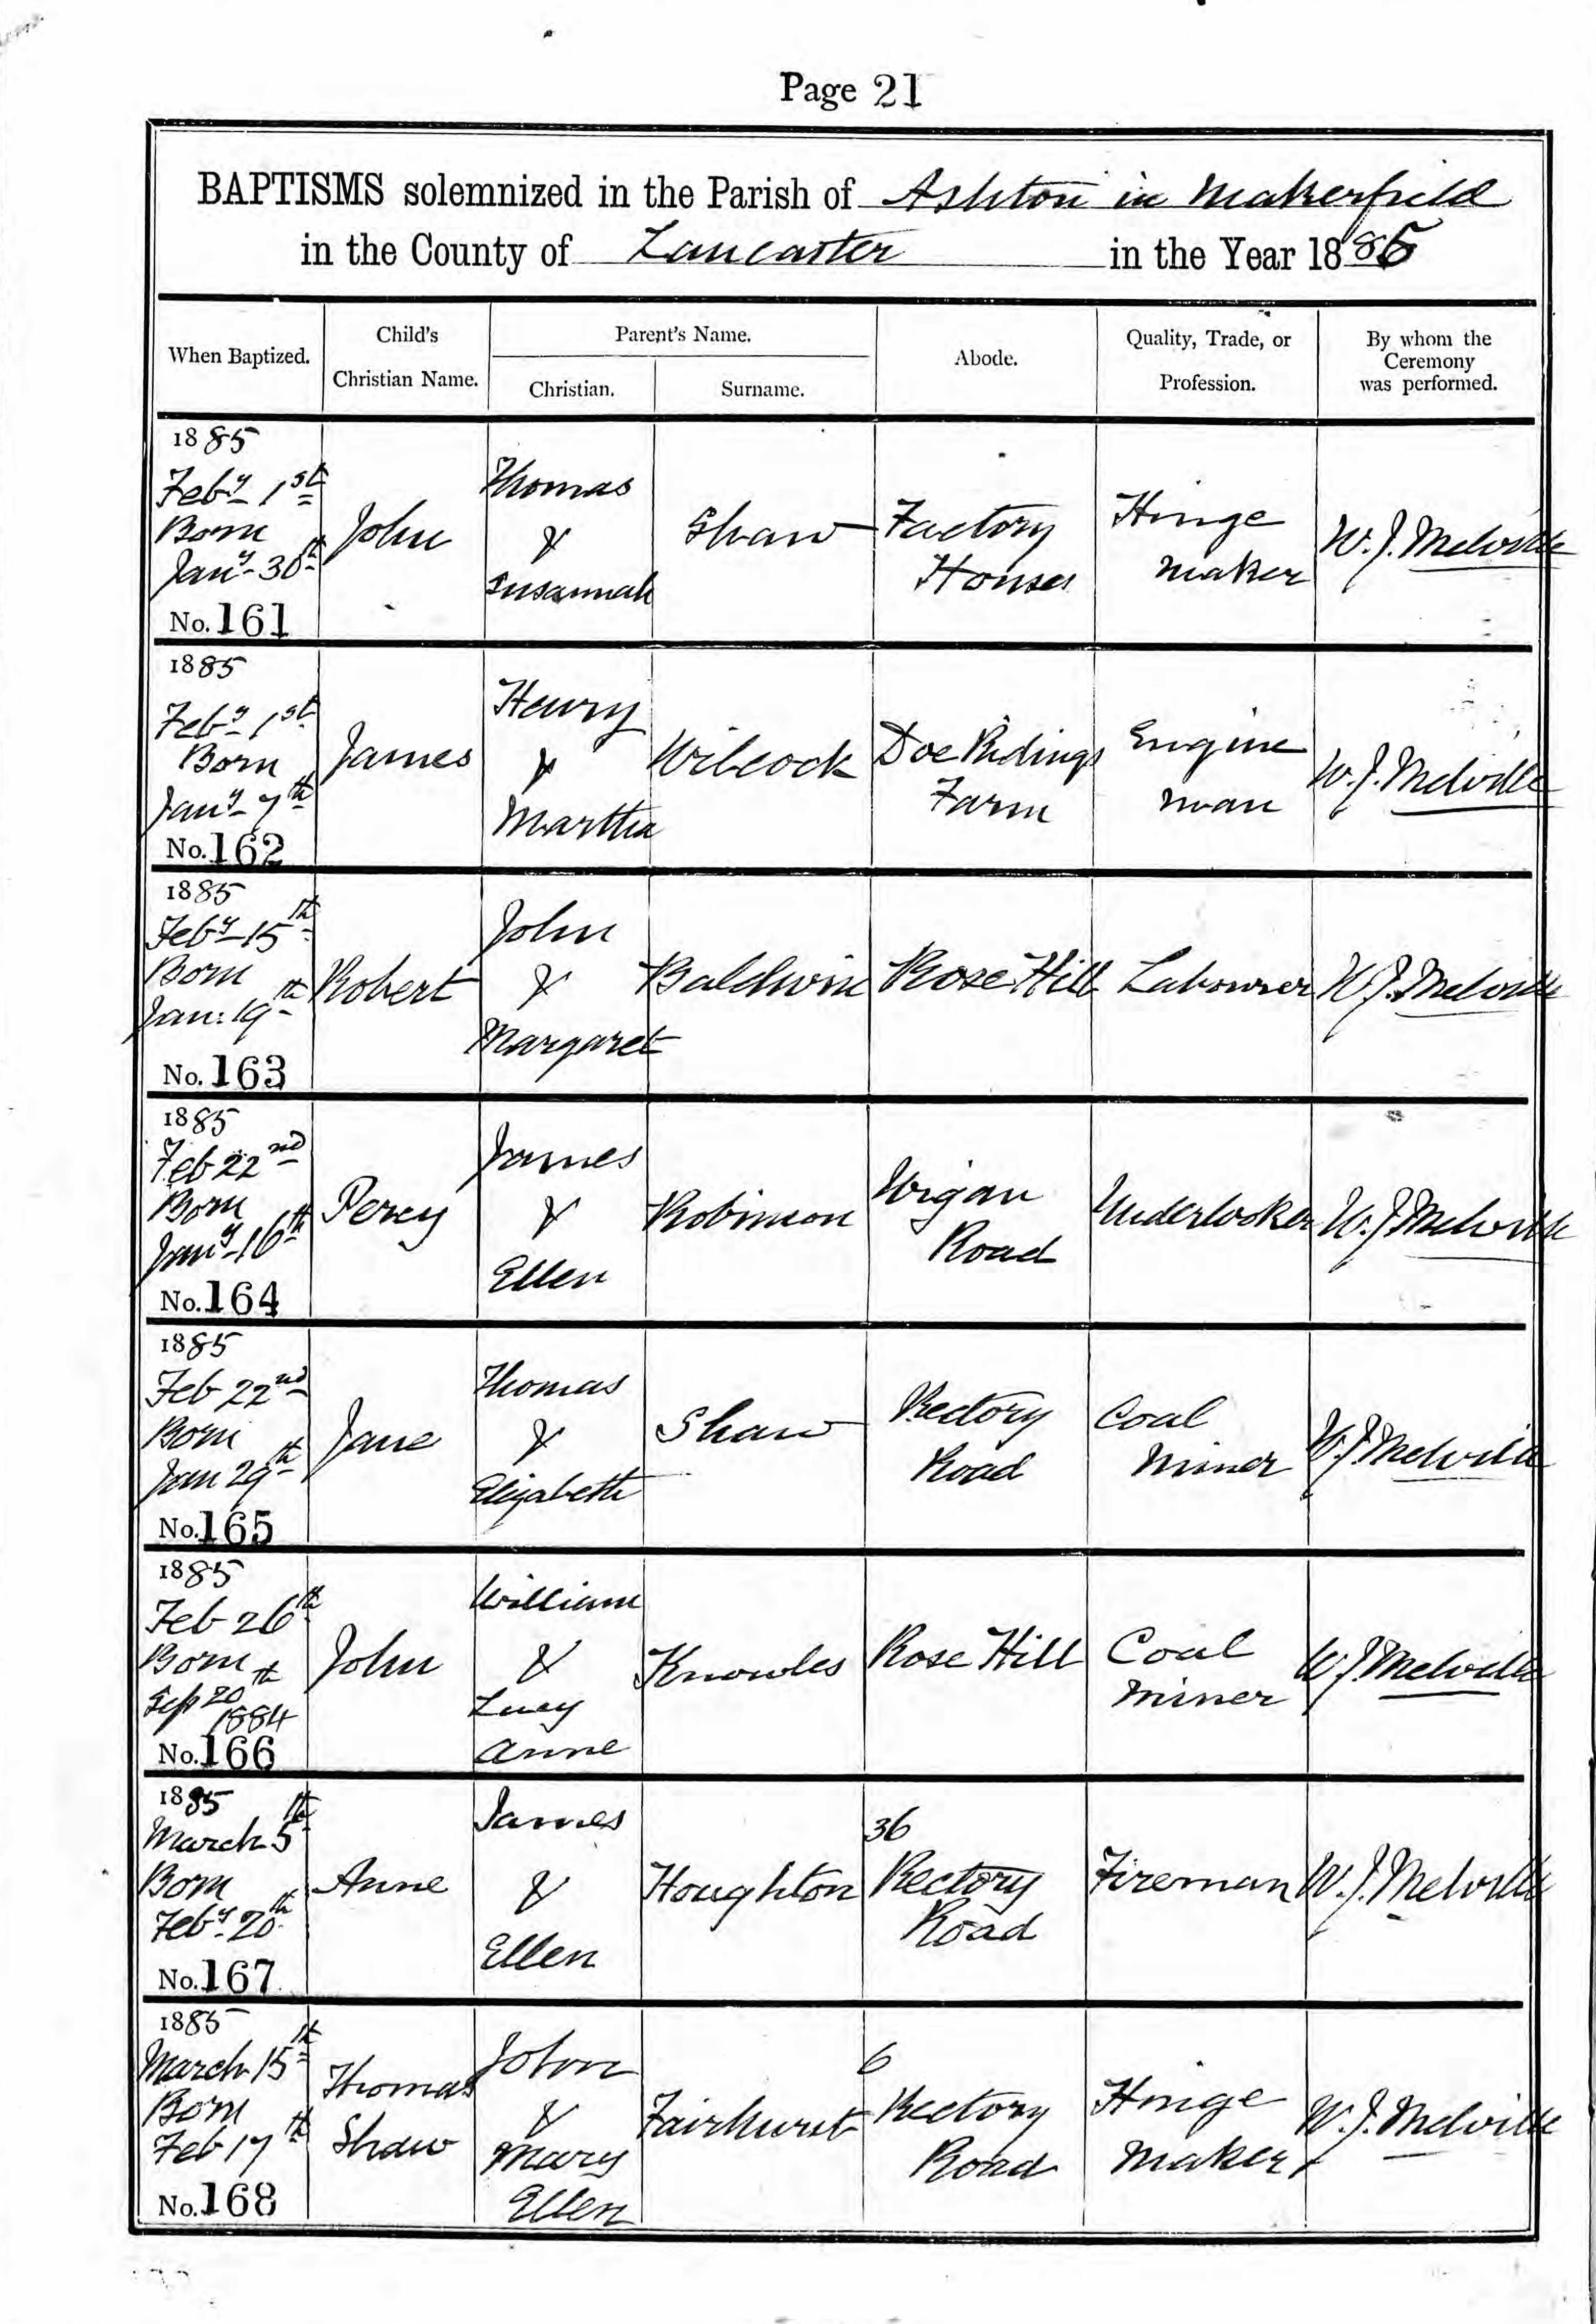 Page 21
BAPTISMS solemnized in the Parish of Ashton in Makerfield
in the County of Lancaster in the Year 1885
When Baptized.
Child's
Christian Name.
Parent's Name.
Christian.
Surname.
Abode.
Quality, Trade, or
Profession.
By whom the
Ceremony
was performed.
1885
Feby 1st
Born
Jany 30th
No. 161
John
Thomas
&
Susannah
Shaw
Factory
Houses
Hinge
Maker
W. J. Melville
1885
Feby 1st
Born
Jany 7th
No. 162
James
Henry
&
Martha
Wilcock
Doe Ridings
Farm
Engine
man
W. J. Melville
1885
Feby 15th
Born
Jan: 19th
No. 163
Robert
John
&
Margaret
Baldwin
Rose Hill
Labourer
W. J. Melville
1885
Feb 22nd
Born
Jany 16th
No. 164
Percy
James
&
Ellen
Robinson
Wigan
Road
Underlooker
W. J. Melville
1885
Feb 22nd
Born
Jan 29th
No. 165
Jane
Thomas
&
Elizabeth
Shaw
Rectory
Road
Coal
Miner
W. J. Melville
1885
Feb 26th
Born
Sep 20th
1884
No. 166
John
William
&
Lucy
Anne
Knowles
Rose Hill
Coal
Miner
W. J. Melville
1885
March 5th
Born
Feby 20th
No. 167
Anne
James
&
Ellen
Houghton
36
Rectory
Road
Fireman
W. J. Melville
1885
March 15th
Born
Feb 17th
No. 168
Thomas
Shaw
John
&
Mary
Ellen
Fairhurst
6
Rectory
Road
Hinge
Maker
W. J. Melville